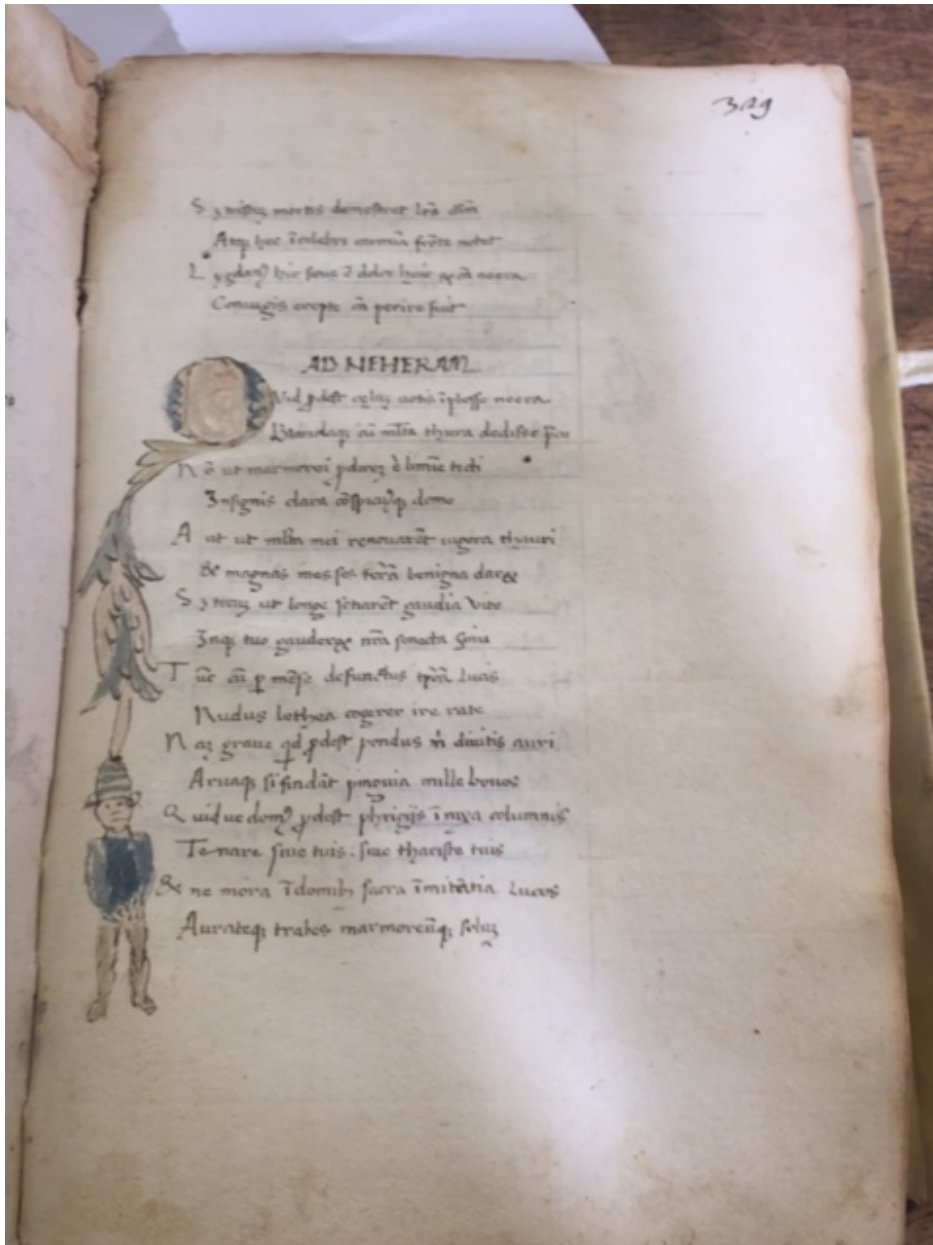 329
Sʒ tristẽ mortis demõstret lr̃a cãm
Atqʒ hec ĩ celebri carmĩa frõte notet
Lygdam⁹ hic situs ẽ dolor huic & cã neera
Coniugis erepte cã perire fuit
AD NEHERAM
Quid ꝓdest celuʒ votis ĩplesse neera
Blandaqʒ cũ ml̃ta thura dedisse p̃ce
Nõ ut marmorei ꝓdireʒ e limĩe tecti
Insignis clara cõspicuusqʒ domo
Aut ut ml̃ta mei renouarẽt iugera thauri
& magnas messes terra benigna daret
Sʒ tecuʒ ut longe sotiarẽt gaudia vite
Inqʒ tuo gauderet nr̃a senecta sinu
Tũc cũ ꝑ mẽse defunctus tp̃ra lucis
Nudus lethea cogerer ire rate
Naʒ graue qd ꝓdest pondus m̃ diuitis auri
Aruaqʒ si findãt pinguia mille boues
Quidue dom⁹ ꝓdest phrigijs ĩnixa columnis
Tenare siue tuis . siue thariste tuis
& nemora ĩ domibʒ sacra ĩmitãtia lucos
Aurateqʒ trabes marmoreũqʒ soluʒ